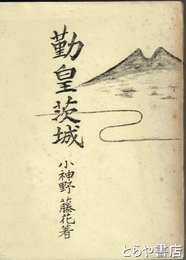 勤皇茨城
小神野藤花著
とらや書店